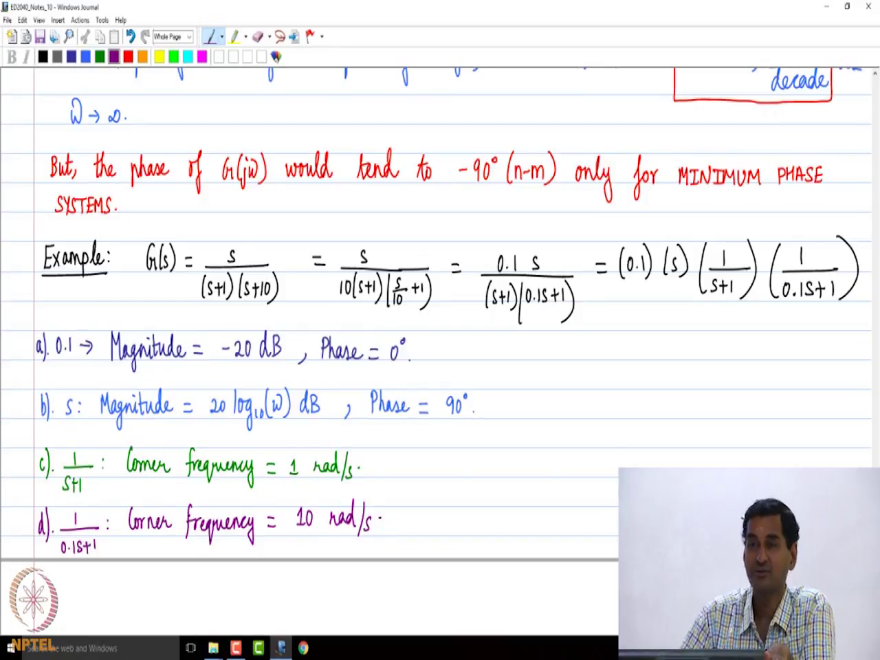 ED2040_Notes_10 - Windows Journal
File Edit View Insert Actions Tools Help
Whole Page
B I
decade
ω → ∞.
But, the phase of G(jω) would tend to -90° (n-m) only for MINIMUM PHASE
SYSTEMS.
Example: G(s) = s / (s+1)(s+10) = s / 10(s+1)(s/10 +1) = 0.1 s / (s+1)(0.1s+1) = (0.1) (s) (1/(s+1)) (1/(0.1s+1))
a). 0.1 → Magnitude = -20 dB , Phase = 0°.
b). s: Magnitude = 20 log₁₀(ω) dB , Phase = 90°.
c). 1/(s+1) : Corner frequency = 1 rad/s.
d). 1/(0.1s+1) : Corner frequency = 10 rad/s.
NPTEL
the web and Windows